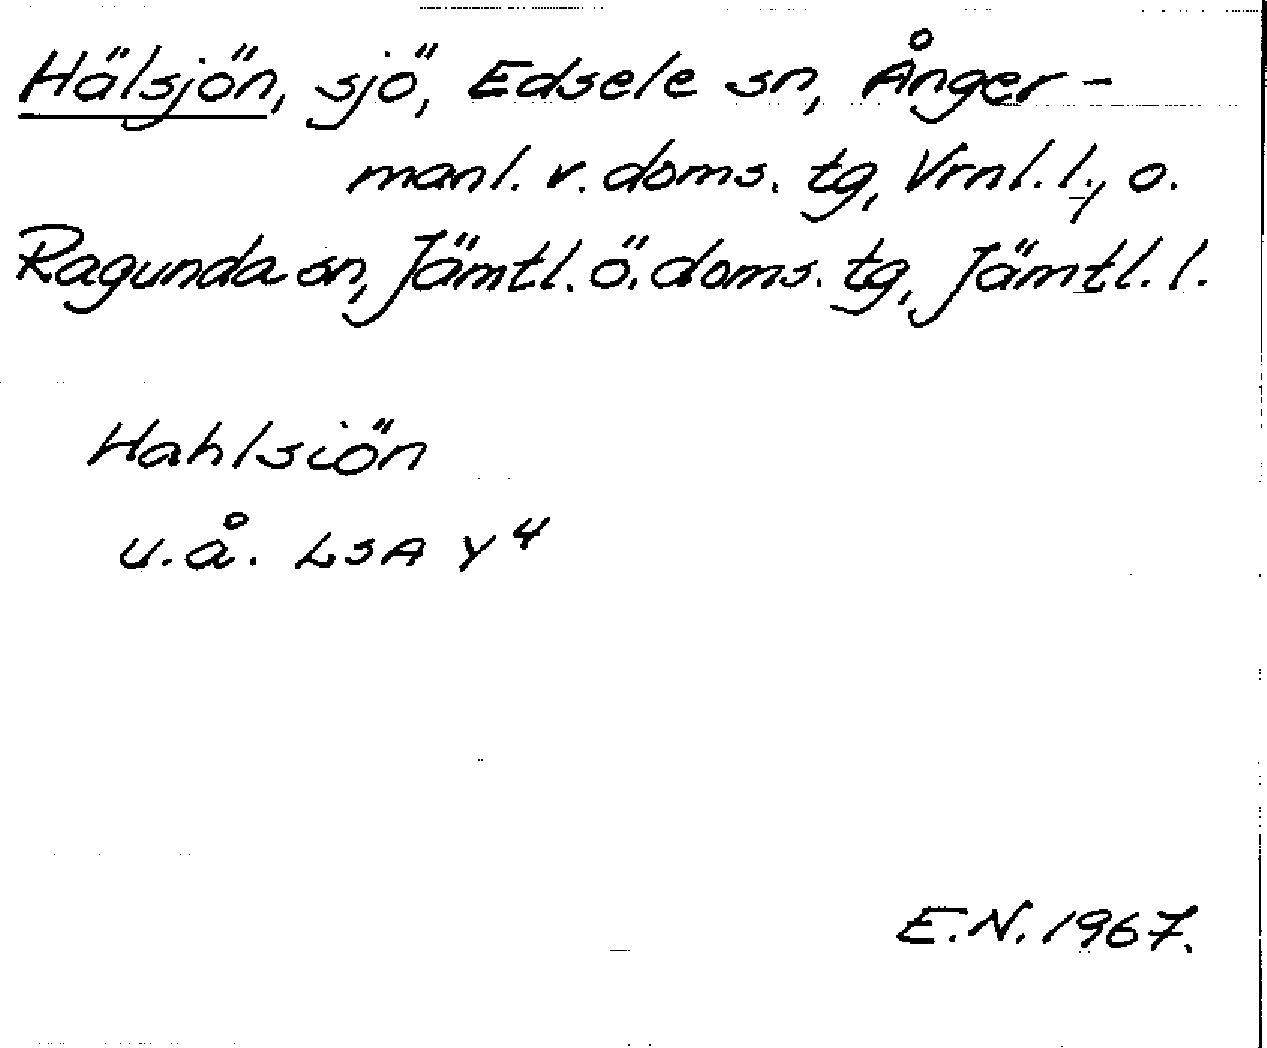 Hälsjön, sjö, Edsele sn, Ånger-
manl. v. doms. tg, Vrnl. l., o.
Ragunda sn, Jämtl. ö. doms. tg, Jämtl. l.
Hahlsiön
u.å. LSA Y 4
E.N. 1967.